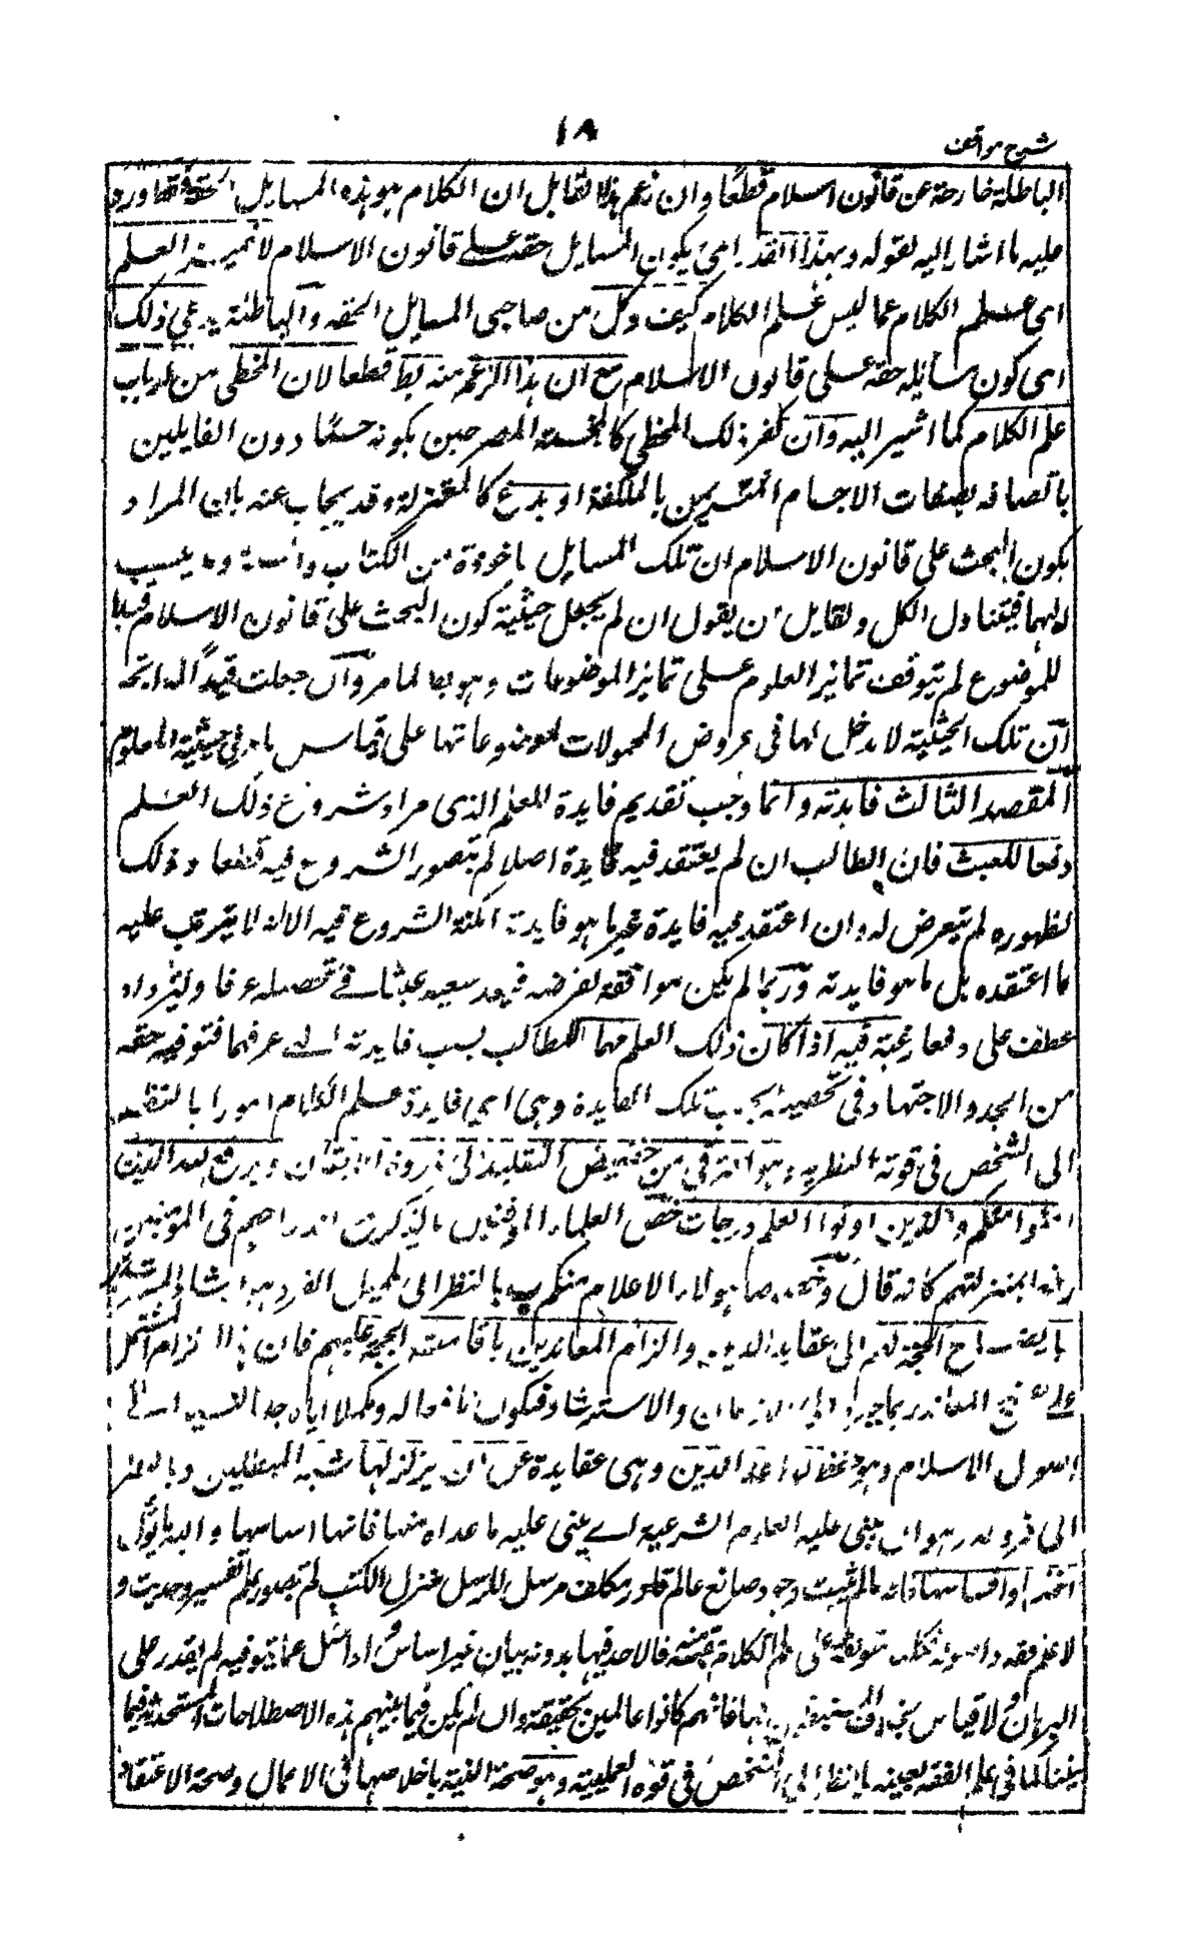 ١٨
شرح مواقف
الباطلة خارجة عن قانون اسلام قطعا وان زعم هذا القايل ان الكلام هو هذه المسايل الحقة فقط ورد
عليه ما اشار اليه بقوله وبهذا القدر اى يكون المسايل حقة على قانون الاسلام لا تميز العلم
اى علم الكلام عما ليس علم الكلام كيف وكل من صاحبى المسايل الحقه والباطلة يدعى ذلك
اى كون مسائله حقه على قانون الاسلام مع ان هذا الزعم منه بط قطعا لان المخطى من ارباب
علم الكلام كما اشير اليه وان كفر ذلك المخطى كالمجسمة المصرحين بكونه جسما دون القايلين
باتصافه بصفات الاجسام المتسترين بالبلكفة او بدع كالمعتزلة وقد يجاب عنه بان المراد
بكون البحث على قانون الاسلام ان تلك المسايل ماخوذة من الكتاب والسنة وما ينسب
اليهما فيتناول الكل ولقايل ان يقول ان لم يجعل حيثية كون البحث على قانون الاسلام قيدا
للموضوع لم يتوقف تمايز العلوم على تمايز الموضوعات وهو بط لما مر وان جعلت قيدا له اتجه
ان تلك الحيثية لا مدخل لها فى عروض المحمولات لموضوعاتها على قياس ما مر فى حيثية المعلوم
المقصد الثالث فايدته وانما وجب تقديم فايدة العلم الذى يراد شروع ذلك العلم
دفعا للعبث فان الطالب ان لم يعتقد فيه فايدة اصلا لم يتصور الشروع فيه قطعا وذلك
لظهوره لم يتعرض له وان اعتقد فيه فايدة غير ما هو فايدته امكنه الشروع فيه الا انه لا يترتب عليه
ما اعتقده بل ما هو فايدته وربما لم يكن موافقة لغرضه فيعد سعيه عبثا فى تحصيله عرفا وليزداد
عطف على دفعا رغبة فيه اذا كان ذلك العلم مهما للطالب بسبب فايدته التى عرفها فتوفيه حقه
من الجد والاجتهاد فى تحصيله بحسب تلك الفايدة وهى اى فايدة علم الكلام امور ا بالنظر
الى الشخص فى قوته النظرية وهو الترقى من حضيض التقليد الى ذروة الايقان ويرفع الله الذين
امنوا منكم والذين اوتوا العلم درجات خص العلماء الموقنين بالذكر مع اندراجهم فى المؤمنين
رفعا لمنزلتهم كانه قال وخصوصا هولاء الاعلام منكم ب بالنظر الى تكميل الغير وهو ارشاد المسترشدين
بايضاح المحجة لهم الى عقايد الدين والزام المعاندين باقامة الحجة عليهم فان هذا الالزام المشتمل
على المعاند ربما جره الى الاذعان والاسترشاد فيكون نافعا له ومكملا اياه ج بالنسبة الى
اصول الاسلام وهو حفظ قواعد الدين وهى عقايده عن ان يزلزلها شبه المبطلين د بالنظر
الى فروعه وهو ان يبنى عليه العلوم الشرعية اى يبنى عليه ما عداه منها فانها اساسها واليه يؤل
اخذها واقتباسها فانه ما لم يثبت وجود صانع عالم قادر مكلف مرسل للرسل منزل للكتب لم يتصور علم تفسير وحديث و
لا علم فقه واصوله فكلها متوقفة على علم الكلام مقتبسة منه فالاخذ فيها بدونه كبان على غير اساس و اذا سئل عما هو فيه لم يقدر على
البرهان ولا قياس بخلاف المستنبطين لها فانهم كانوا عالمين بحقيقته وان لم يكن فيما بينهم هذه الاصطلاحات المستحدثة فيما
بيننا كما فى علم الفقه بعينه ه بالنظر الى الشخص فى قوته العملية وهو صحة النية باخلاصها فى الاعمال وصحة الاعتقاد